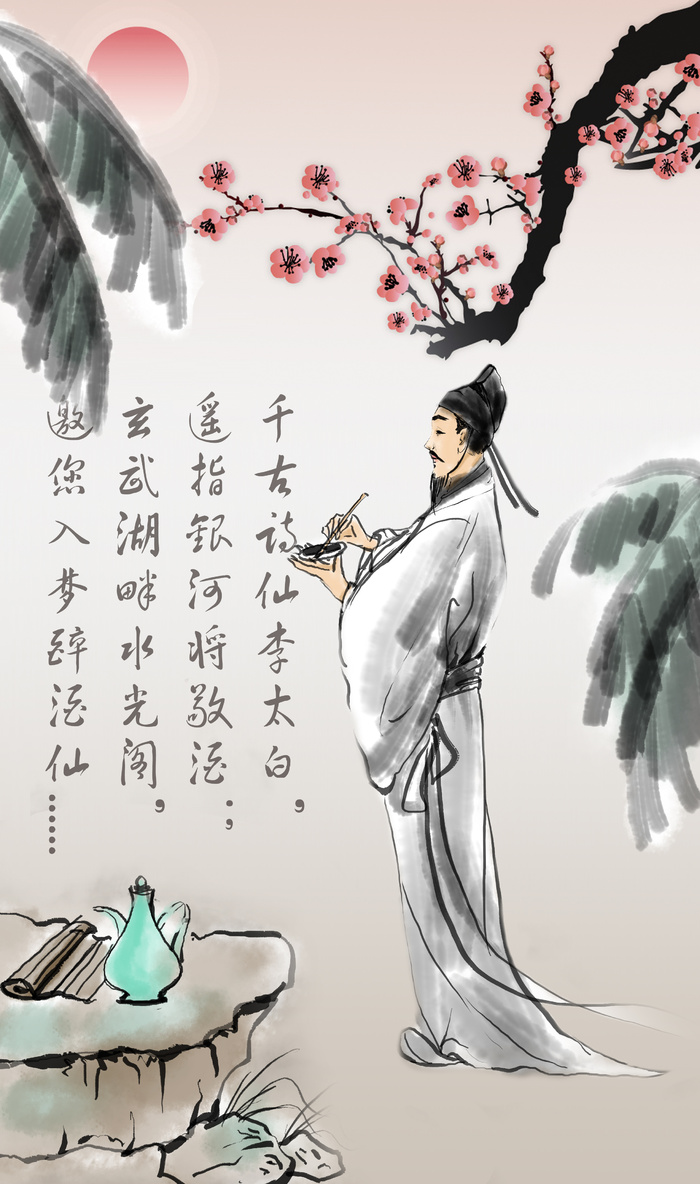 千古诗仙李太白，
遥指銀河将敬酒；
玄武湖畔水光阁，
邀您入梦醉酒仙……